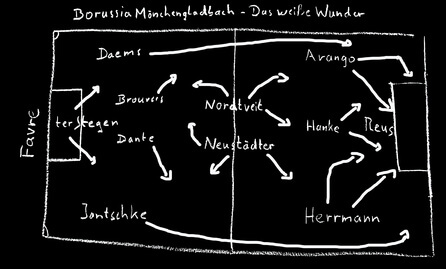 Borussia Mönchengladbach - Das weiße Wunder
Daems
Arango
Brouwers
Nordtveit
Favre
ter Stegen
Hanke
Reus
Dante
Neustädter
Jantschke
Herrmann